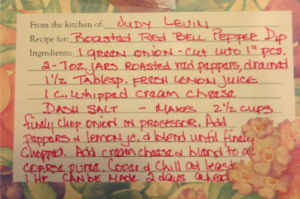 From the kitchen of: JUDY LEVIN
Recipe for: Roasted Red Bell Pepper Dip
Ingredients: 1 green onion - cut into 1" pcs.
2 - 7oz. jars roasted red peppers, drained
1 1/2 Tablesp. FRESH lemon juice
1 c. whipped cream cheese
DASH SALT - MAKES 2 1/2 cups
finely chop onion in processor. Add
peppers & lemon jc. & blend until finely
chopped. Add cream cheese & bland to a
coarse puree. Cover & Chill at least
1 Hr. CAN BE MADE 2 days ahead